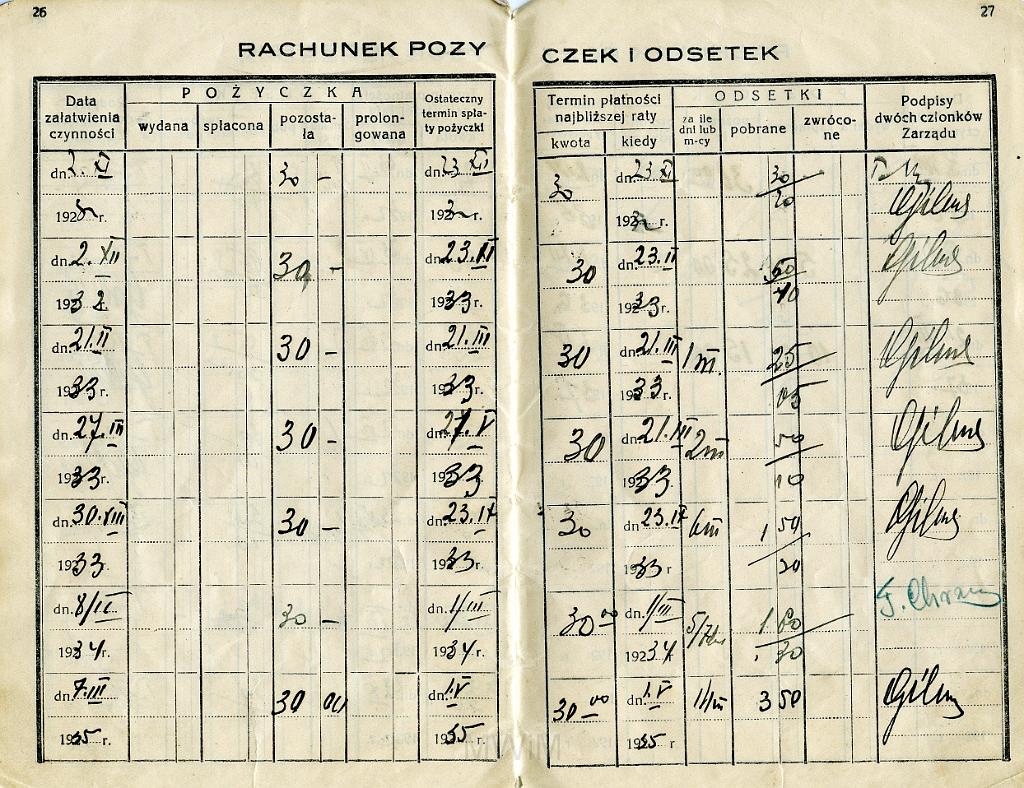 26
27
RACHUNEK POZY
CZEK I ODSETEK
Data załatwienia czynności
POŻYCZKA
wydana
spłacona
pozostała
prolongowana
Ostateczny termin spłaty pożyczki
Termin płatności najbliższej raty
kwota
kiedy
ODSETKI
za ile dni lub m-cy
pobrane
zwrócone
Podpisy dwóch członków Zarządu
dn. 2. XI 30 - dn. 23 XI 30 dn. 23 XI 30
192 r. 192 r. 192 r. 20 Gilus
dn. 2. XII 30 - dn. 23. II 30 dn. 23. II 1 50 Gilus
1932 1933 r. 1933 r. 40
dn. 21. II 30 - dn. 21. III 30 dn. 21. III 1 m. 25 Gilus
1933 r. 1933 r. 1933 r. 05
dn. 27. III 30 - dn. 21. V 30 dn. 21. III 2m 50 Gilus
1933 r. 1933 1933. 10
dn. 30. VIII 30 - dn. 23. IX 30 dn 23. IX 6m 1 50 Gilus
1933. 1933 r. 1933 r 30
dn. 8/II 30 - dn. 1/III 30 00 dn. 1/III 1.60
1934 r. 1934 r. 1934 r. 30
dn. 7. III 30 00 dn. 1. V 30 00 dn. 1. V 11/m 3 50 Gilus
1935 r. 1935 r. 1935 r